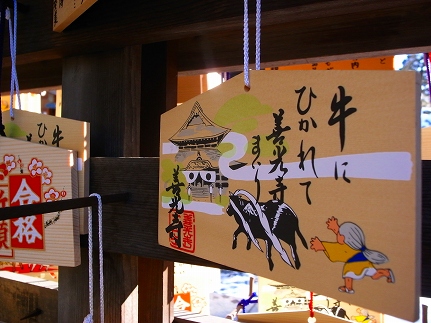 牛に
ひかれて
善光寺
まいり
善光寺
合格
牛に